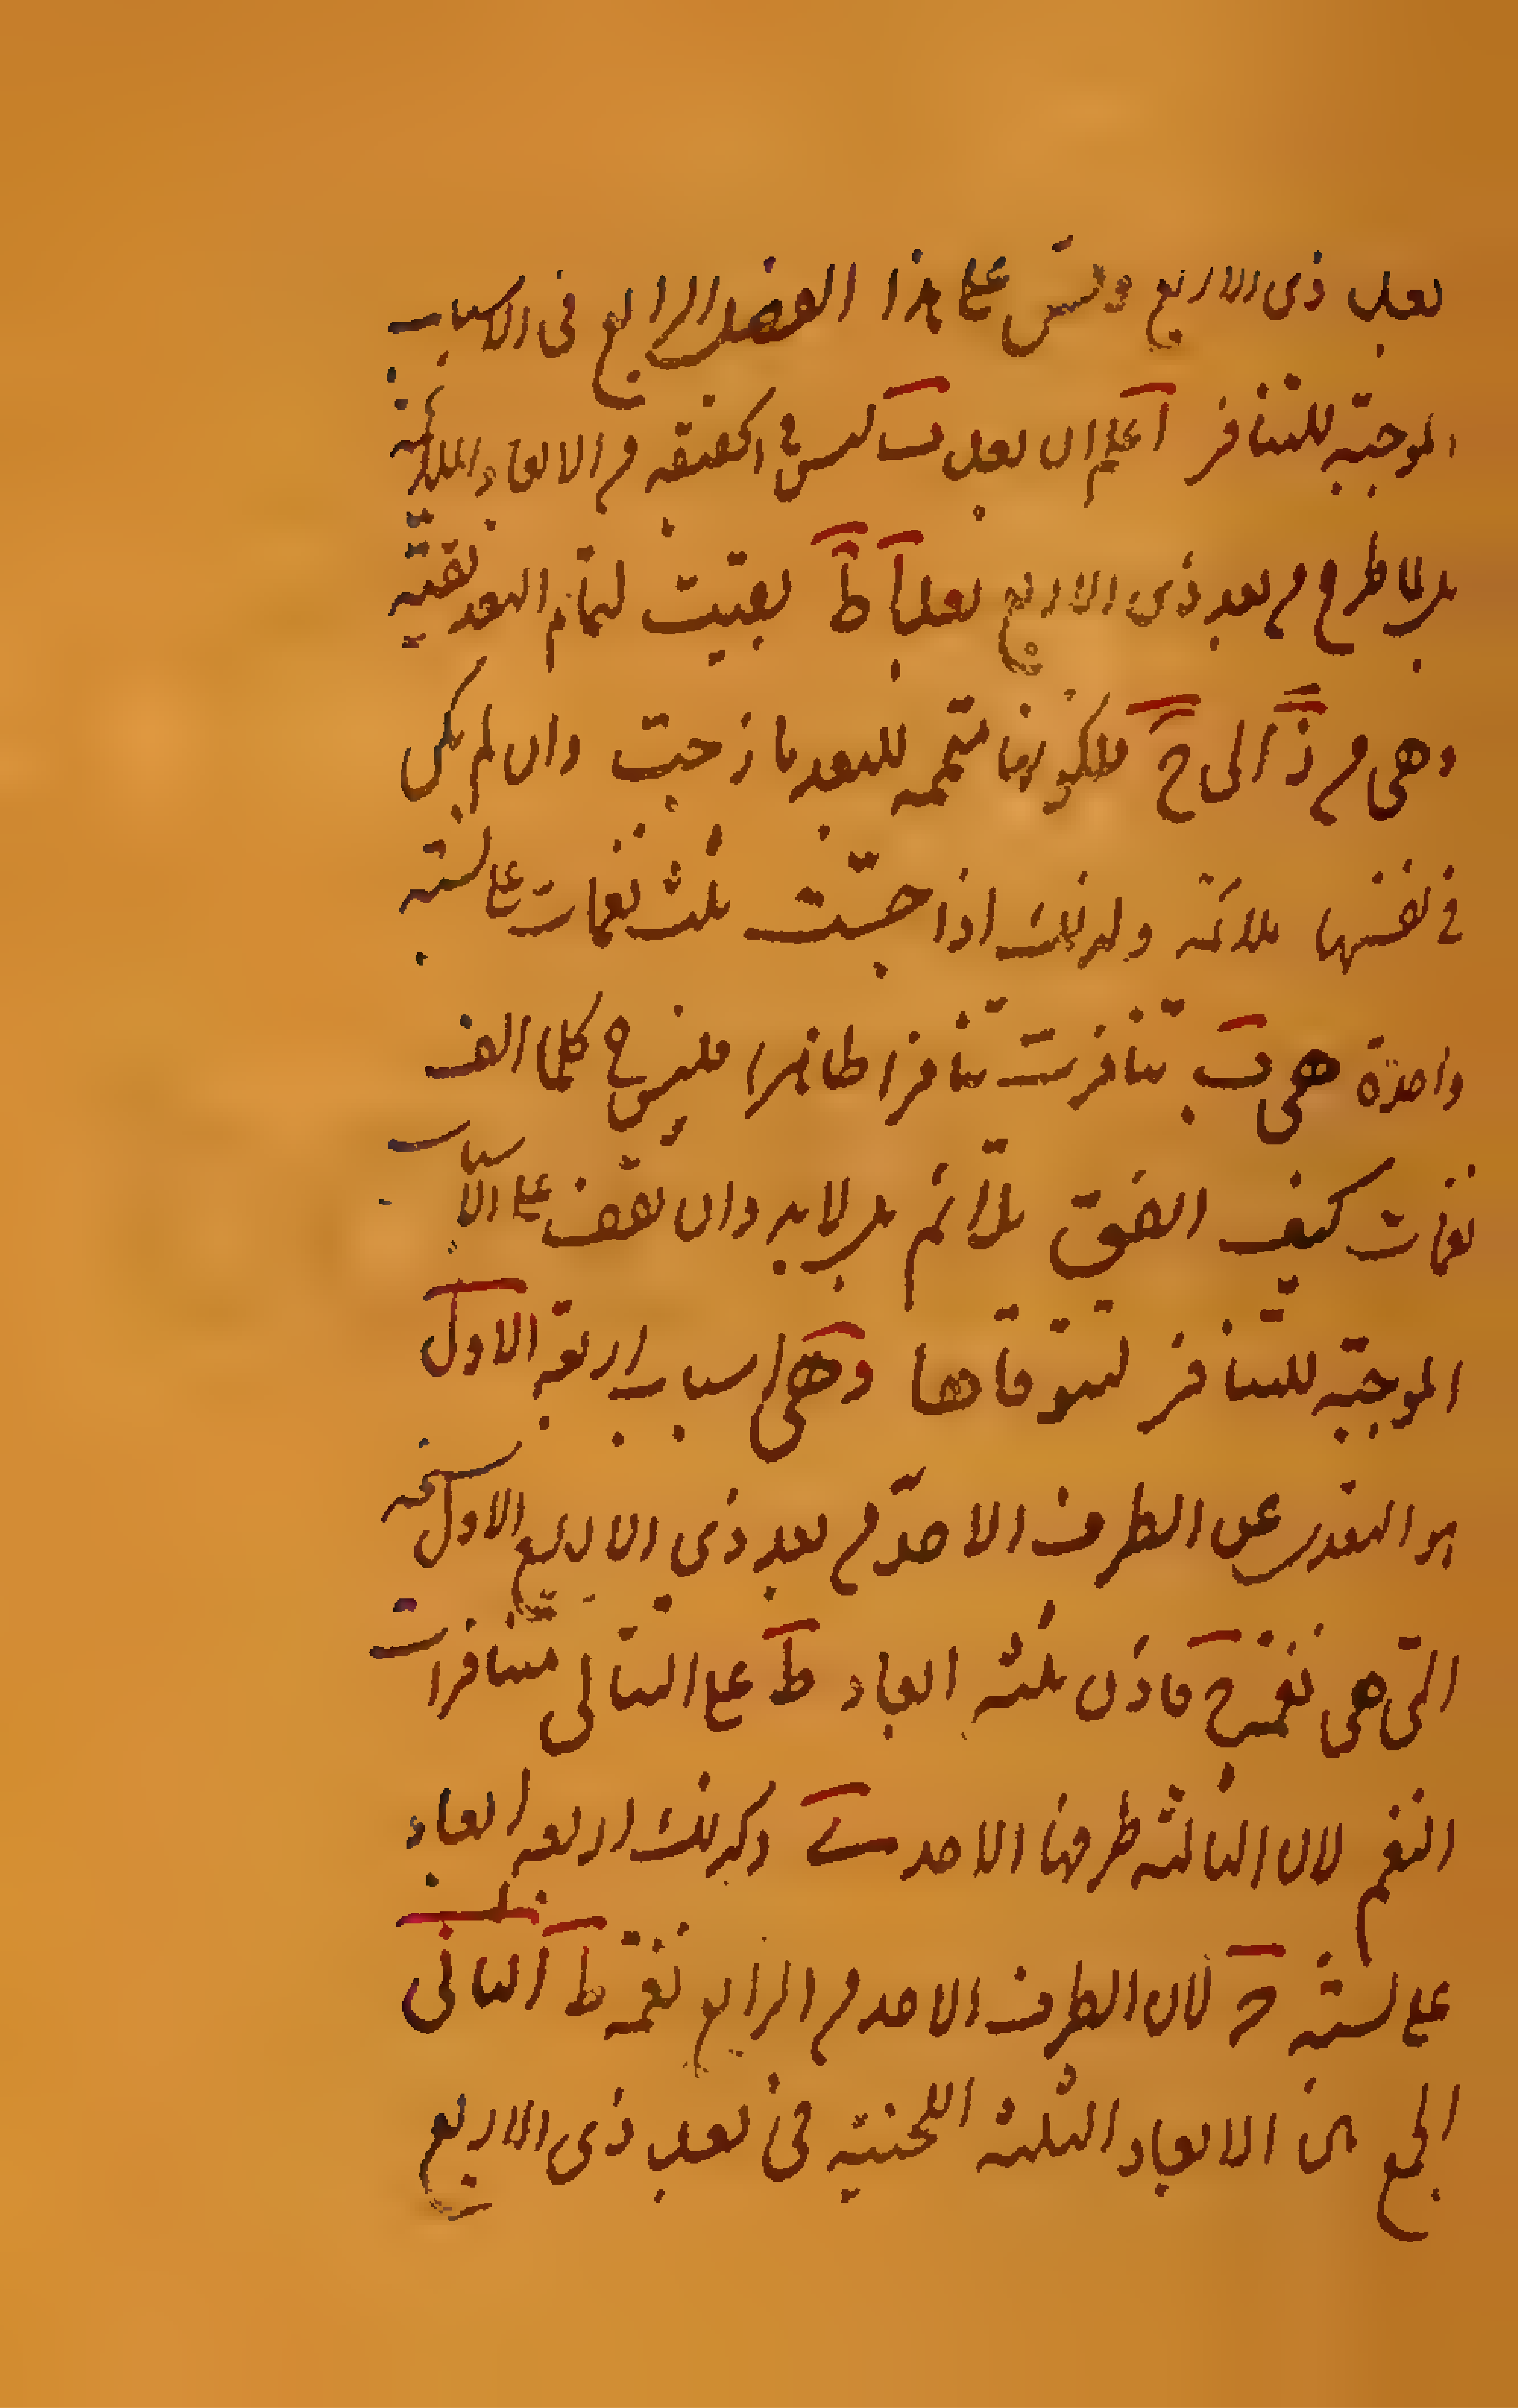 بعد ذى الاربع وقس على هذا الفصل الرابع فى الاسباب
الموجبة للتنافر اعلم ان بعد ب ليس فى الحقيقه من الابعاد الملائمة
بل لما طرح من بعد ذى الاربع بعدا ط بقيت لتمام البعد بقيّة
وهى من ذ الى ح فلكونها متممه للبعد مازجت وان لم يكن
فى نفسها ملائمة ولذلك اذا جسّت ثلث نغمات على نسبة
واحدة هى ب تنافرت تنافرا ظاهرا فليس ح كلما الف
نغمات كيف اتفق تلائم بل لا بد وان نقف على الاسباب
الموجبة للتنافر لنتوقاها وهى اسباب اربعة الاول
هو التعدى عن الطرف الاحدّ من بعد ذى الاربع الاول
التى هى نغمة ح فاذن ثلثة ابعاد ط على التتالى متنافرات
النغم لان الثالثة طرفها الاحد ى وكذلك اربعة ابعاد
على نسبة ج لان الطرف الاحد من الرابع نغمة ط الثانى
الجمع بين الابعاد الثلثة اللحنية فى بعد ذى الاربع